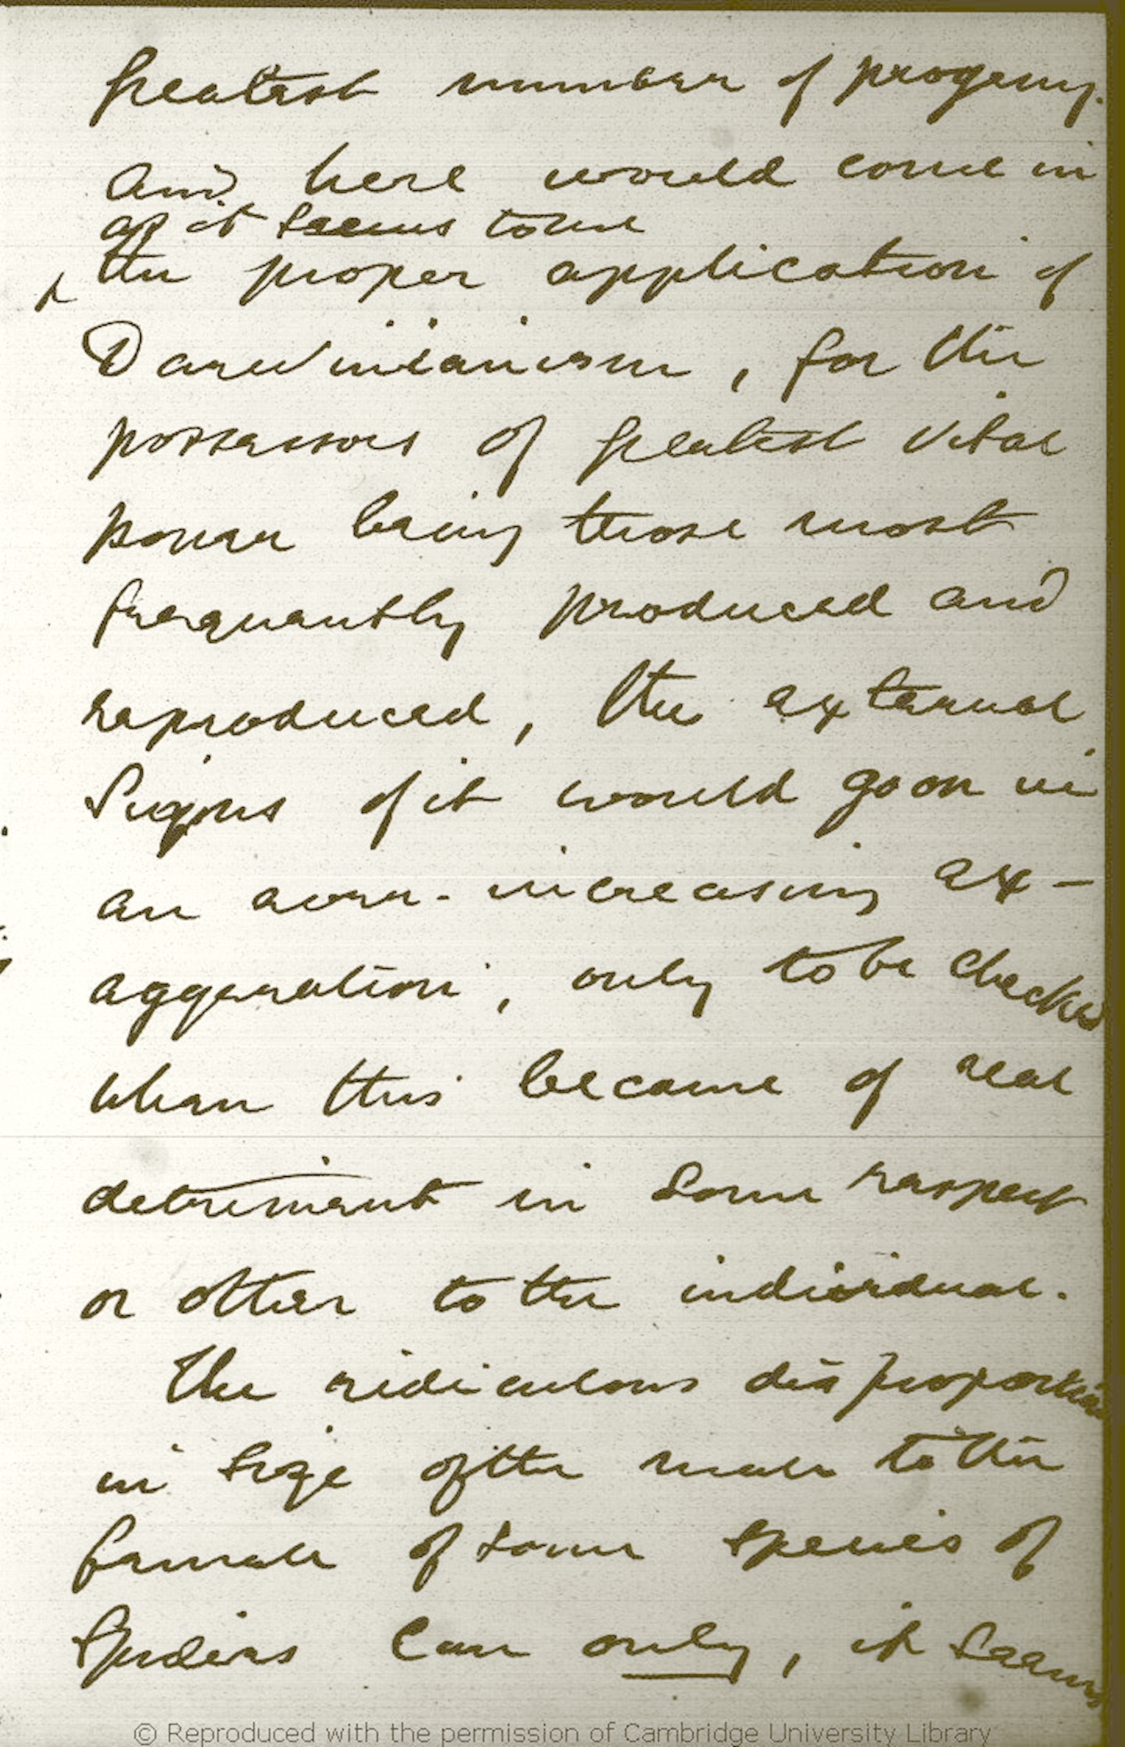 greatest number of progeny.
And here would come in
as it seems to me
^ the proper application of
Darwinianism, for the
possessors of greatest vital
power being those most
frequently produced and
reproduced, the external
signs of it would go on in
an ever-increasing ex-
aggeration, only to be checked
when this became of real
detriment in some respect
or other to the individual.
The ridiculous disproportion
in size of the male to the
female of some species of
Spiders can only, it seems
© Reproduced with the permission of Cambridge University Library